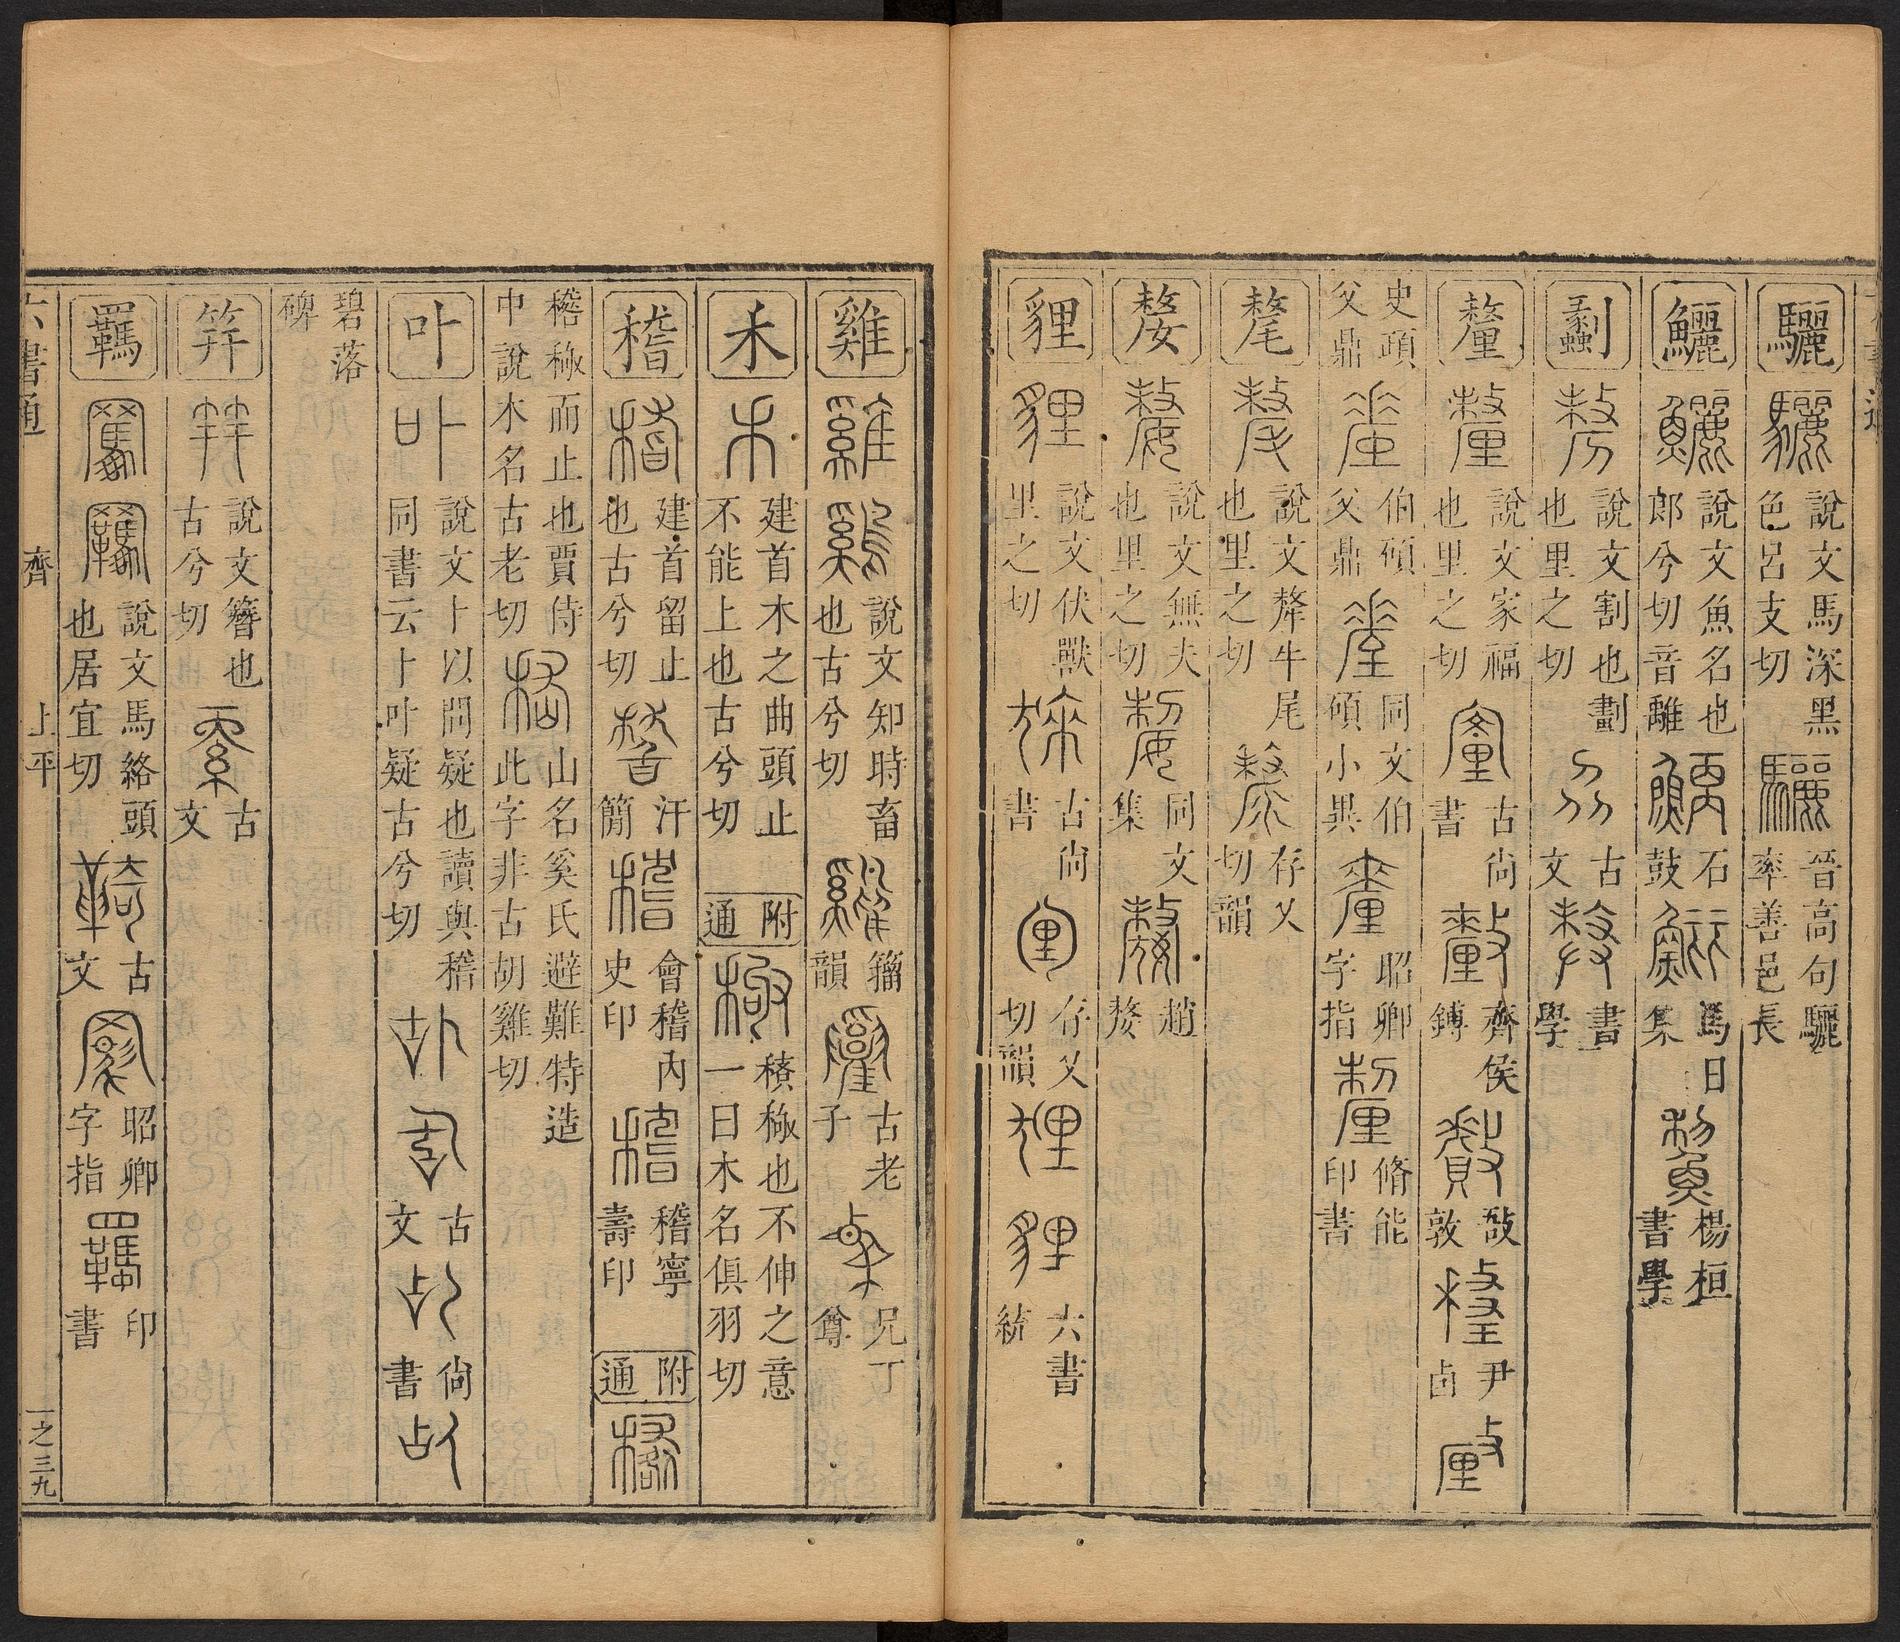 驪 說文馬深黑色呂支切 晉高句驪率善邑長
鱺 說文魚名也郎兮切音離 石鼓 馬日集 楊桓書學
劙 說文割也劃也里之切 古文 書學
釐 說文家福也里之切 古尚書 齊侯鎛 敔敦 尹卣
史頙父鼎 伯碩父鼎 同文伯碩小異 昭卿字指 脩能印書
氂 說文犛牛尾也里之切 存乂切韻
嫠 說文無夫也里之切 同文集 趙嫠
貍 說文伏獸里之切 古尚書 存乂切韻 六書統
雞 說文知時畜也古兮切 籀韻 古老子 兄丁尊
禾 建首木之曲頭止不能上也古兮切 附通 𥠻極也不伸之意一曰木名俱羽切
稽 建首留止也古兮切 汗簡 會稽內史印 稽寧壽印 附通
𥡴極而止也賈侍中說木名古老切 山名奚氏避難特造此字非古胡雞切
卟 說文卜以問疑也讀與稽同書云卜卟疑古兮切 古文 尚書
碧落碑
笄 說文簪也古兮切 古文
羈 說文馬絡頭也居宜切 古文 昭卿字指 印書
六書通 齊 上平 一之三九